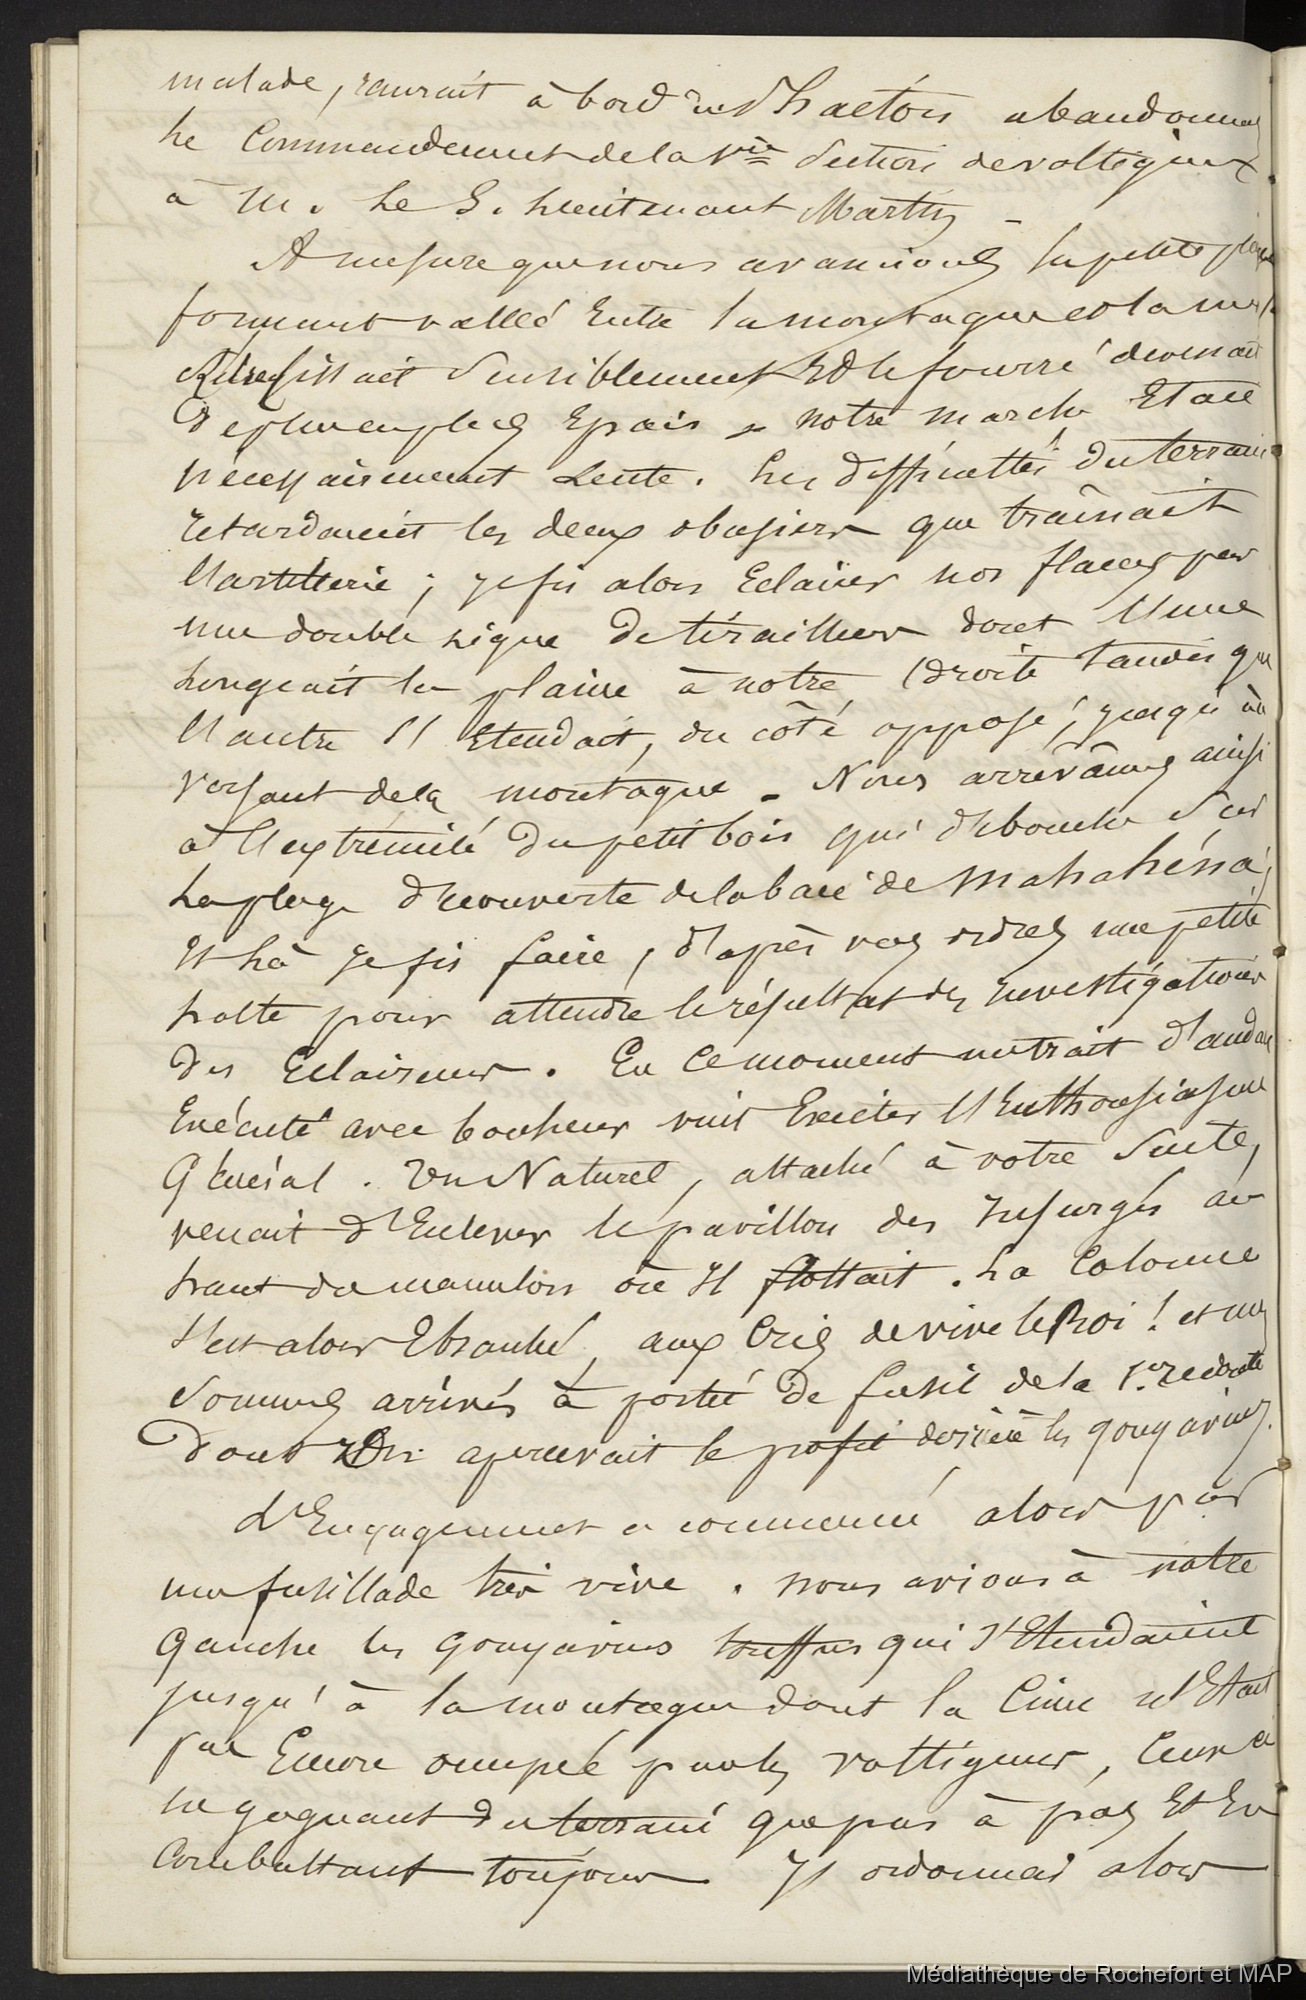 malade, rentrait à bord du Phaéton abandonnant
le Commandement de la 1ère Section de voltigeurs
à M. le S. Lieutenant Martin _
A mesure que nous avancions la petite plage
formant vallée Entre la montagne et la mer
Rétrécissait Sensiblement Et le fourré devenait
de plus en plus Epais _ notre marche Etait
nécessairement Lente. Les difficultés du terrain
retardaient les deux obusiers que traînait
l'artillerie ; je fis alors Eclairer nos flancs par
une double ligne de tirailleurs dont l'une
Longeait la plaine à notre droite tandis que
l'autre s'Etendait, du côté opposé, jusqu'au
versant de la montagne _ Nous arrivâmes ainsi
à l'extrémité du petit bois qui débouche Sur
La plage découverte de la baie de Mahahéna,
Et Là je fis faire, d'après vos ordres une petite
halte pour attendre le résultat des Investigations
des Eclaireurs. En ce moment un trait d'audace
Exécuté avec bonheur vint Exciter l'Enthousiasme
Général. Un Naturel, attaché à votre Suite,
venait d'Enlever le pavillon des Insurgés au
haut du mamelon où Il flottait. La Colonne
s'est alors Ebranlé, aux Cris de vive le Roi ! et nous
Sommes arrivés à porté de fusil de la 1ère redoute
dont On apercevait le profil derrière les gouyaviers.
L'Engagement a commencé alors par
une fusillade très vive. nous avions à notre
Gauche les Gouyaviers touffus qui s'Etendaient
jusqu'à la montagne dont la Cime n'Etait
pas Encore occupée par les voltigeurs, Ceux ci
ne gagnant du terrain que pas à pas Et En
Combattant toujours _ J'ordonnai alors
Médiathèque de Rochefort et MAP